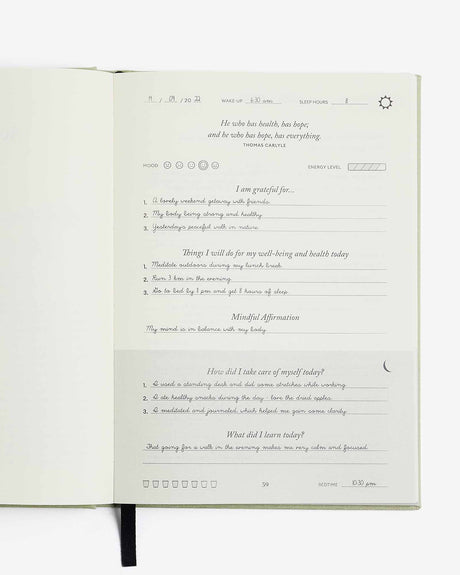 / 09 / 20 22 WAKE-UP 6:30 am SLEEP HOURS 8
He who has health, has hope;
and he who has hope, has everything.
THOMAS CARLYLE
MOOD ENERGY LEVEL
I am grateful for...
1. A lovely weekend getaway with friends.
2. My body being strong and healthy.
3. Yesterday's peaceful walk in nature.
Things I will do for my well-being and health today
1. Meditate outdoors during my lunch break.
2. Run 3 km in the evening.
3. Go to bed by pm and get 8 hours of sleep.
Mindful Affirmation
My mind is in balance with my body.
How did I take care of myself today?
1. I used a standing desk and did some stretches while working.
2. I ate healthy snacks during the day - love the dried apples.
3. I meditated and journaled, which helped me gain some clarity.
What did I learn today?
That going for a walk in the evening makes me very calm and focused.
59 BEDTIME 10:30 pm